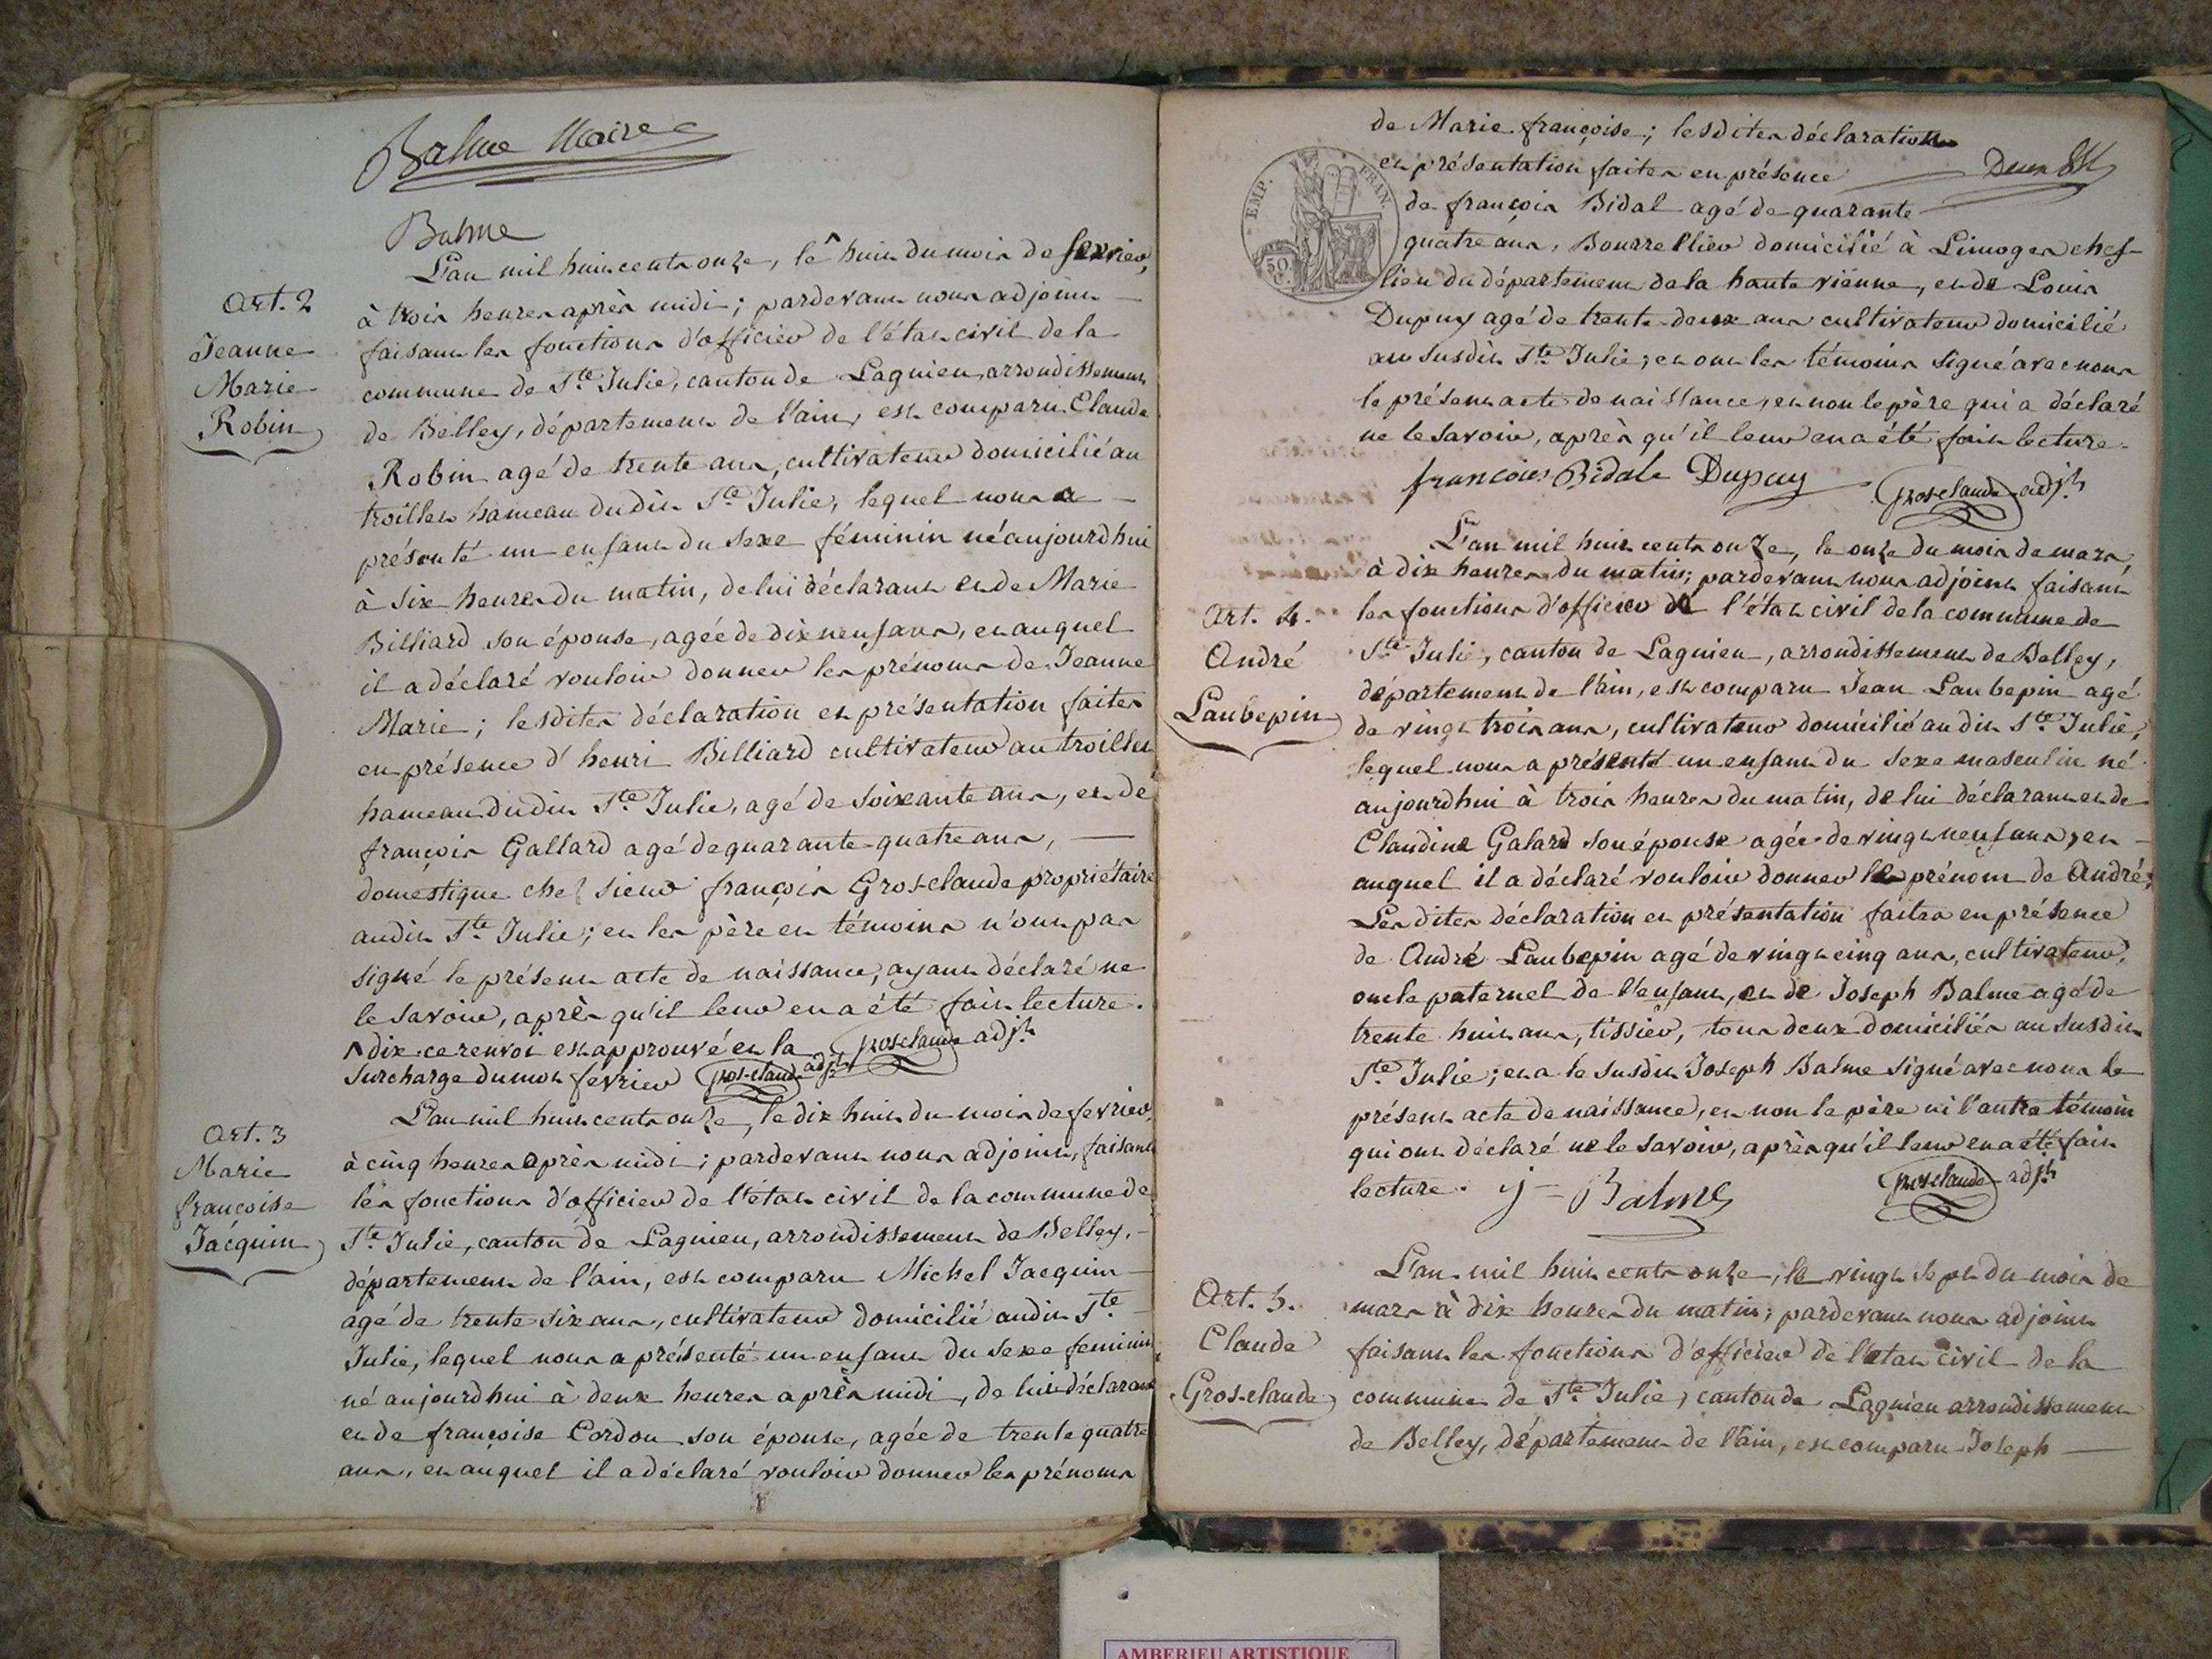 Balme Maire
Balme
Art. 2
Jeanne
Marie
Robin
L'an mil huit cents onze, le ^ huit du mois de fevrier,
à trois heures après midi; pardevant nous adjoint
faisant les fonctions d'officier de l'état civil de la
commune de Ste. Julie, canton de Lagnieu, arrondissement
de Belley, département de l'ain, est comparu Claude
Robin agé de trente ans, cultivateur domicilié au
troillet hameau dudit Ste Julie, lequel nous a
présenté un enfant du sexe féminin né aujourdhui
à six heures du matin, de lui déclarant et de Marie
Billiard son épouse, agée de dix neuf ans, et auquel
il a déclaré vouloir donner les prénoms de Jeanne
Marie; lesdites déclaration et présentation faites
en présence d'henri Billiard cultivateur au troillet
hameau dudit Ste. Julie, agé de soixante ans, et de
françois Gallard agé de quarante quatre ans,
domestique chez sieur françois Gros-claude propriétaire
audit Ste. Julie; et les père et témoins n'ont pas
signé le présent acte de naissance, ayant déclaré ne
le savoir, après qu'il leur en a été fait lecture.
^ dix ce renvoi est approuvé et la groscelaude adjt
surcharge du mot fevrier gros-claude adjt
Art. 3
Marie
françoise
Jacquin
L'an mil huit cents onze, le dix huit du mois de fevrier,
à cinq heures après midi; pardevant nous adjoint, faisant
les fonctions d'officier de l'état civil de la commune de
Ste. Julie, canton de Lagnieu, arrondissement de Belley,
département de l'ain, est comparu Michel Jacquin
agé de trente six ans, cultivateur domicilié audit Ste
Julie, lequel nous a présenté un enfant du sexe feminin
né aujourdhui à deux heures après midi, de lui déclarant
et de françoise Cordon son épouse, agée de trente quatre
ans, et auquel il a déclaré vouloir donner les prénoms
de Marie françoise; lesdites déclaration
et présentation faites en présence
de françois Bidal agé de quarante
quatre ans, Bourrellier domicilié à Limoges chef-
lieu du département de la haute vienne, et de Louis
Dupuy agé de trente deux ans cultivateur domicilié
au susdit Ste. Julie; et ont les témoins signé avec nous
le présent acte de naissance, et non le père qui a déclaré
ne le savoir, après qu'il leur en a été fait lecture.
EMP. FRAN.
50 C.
françois Bidale Dupuy groseclaude adjt
Art. 4.
André
Laubepin
L'an mil huit cents onze, le onze du mois de mars,
à dix heures du matin; pardevant nous adjoint faisant
les fonctions d'officier de l'état civil de la commune de
Ste. Julie, canton de Lagnieu, arrondissement de Belley,
département de l'ain, est comparu Jean Laubepin agé
de vingt trois ans, cultivateur domicilié audit Ste. Julie,
lequel nous a présenté un enfant du sexe masculin né
aujourdhui à trois heures du matin, de lui déclarant et de
Claudine Galard son épouse agée de vingt neuf ans, et
auquel il a déclaré vouloir donner le prénom de André;
Les dites déclaration et présentation faites en présence
de André Laubepin agé de vingt cinq ans, cultivateur,
oncle paternel de l'enfant, et de Joseph Balme agé de
trente huit ans, tissier, tous deux domiciliés au susdit
Ste. Julie; et a le susdit Joseph Balme signé avec nous le
présent acte de naissance, et non le père ni l'autre témoin
qui ont déclaré ne le savoir, après qu'il leur en a été fait
lecture. j = Balme groseclaude adjt
Art. 5.
Claude
Gros-claude
L'an mil huit cents onze, le vingt sept du mois de
mars à dix heures du matin; pardevant nous adjoint
faisant les fonctions d'officier de l'état civil de la
commune de Ste. Julie, canton de Lagnieu arrondissement
de Belley, département de l'ain, est comparu Joseph
AMBERIEU ARTISTIQUE